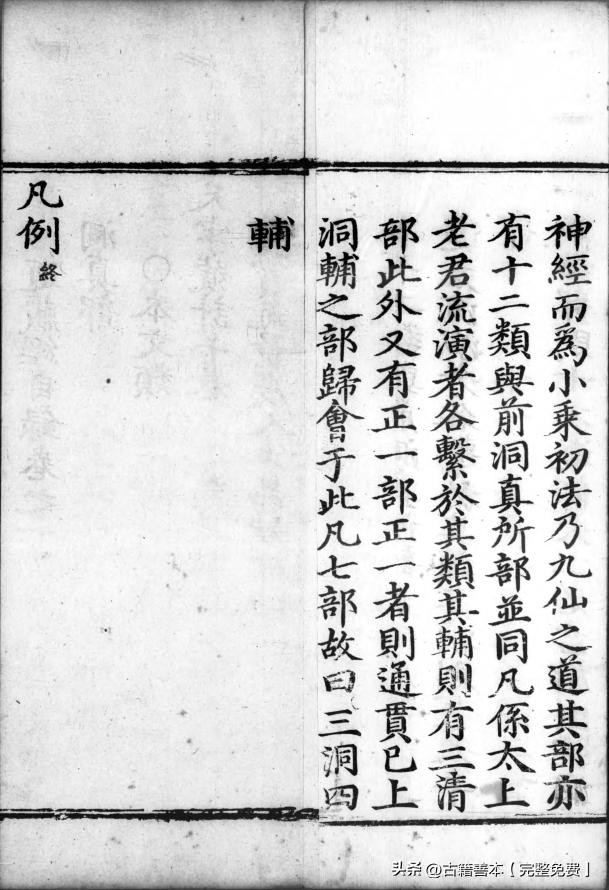 神經而爲小乘初法乃九仙之道其部亦
有十二類與前洞真所部並同凡係太上
老君流演者各繫於其類其輔則有三清
部此外又有正一部正一者則通貫已上
洞輔之部歸會于此凡七部故曰三洞四
輔
凡例終
头条 @古籍善本【完整免费】